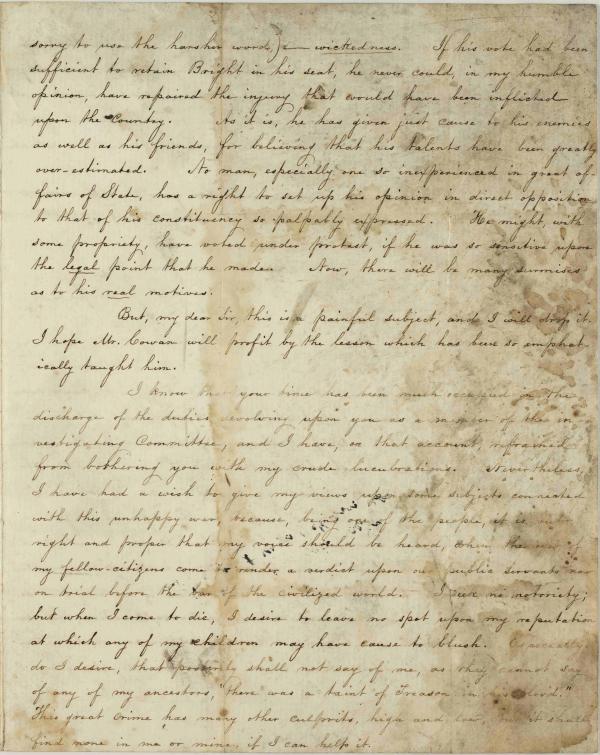 sorry to use the harsher word,) wickedness. If his vote had been
sufficient to retain Bright in his seat, he never could, in my humble
opinion, have repaired the injury that would have been inflicted
upon the Country. As it is, he has given just cause to his enemies
as well as his friends, for believing that his talents have been greatly
over-estimated. No man, especially one so inexperienced in great af-
fairs of State, has a right to set up his opinion in direct opposition
to that of his constituency so palpably expressed. He might, with
some propriety, have voted under protest, if he was so sensitive upon
the legal point that he made. Now, there will be many surmises
as to his real motives.
But, my dear Sir, this is a painful subject, and I will drop it.
I hope Mr. Cowan will profit by the lesson which has been so emphat-
ically taught him.
I know that your time has been much occupied in the
discharge of the duties devolving upon you as a member of the in-
vestigating Committee, and I have, on that account, refrained
from bothering you with my crude lucubrations. Nevertheless,
I have had a wish to give my views upon some subjects connected
with this unhappy war, because, being one of the people, it is
right and proper that my voice should be heard, when the
my fellow-citizens come to render a verdict upon our public servants now
on trial before the bar of the civilized world. I seek no notoriety;
but when I come to die, I desire to leave no spot upon my reputation
at which any of my children may have cause to blush. Especially
do I desire, that posterity shall not say of me, as they cannot say
of any of my ancestors, "there was a taint of Treason in his blood."
This great crime has many other culprits, high and low, but it shall
find none in me or mine, if I can help it.